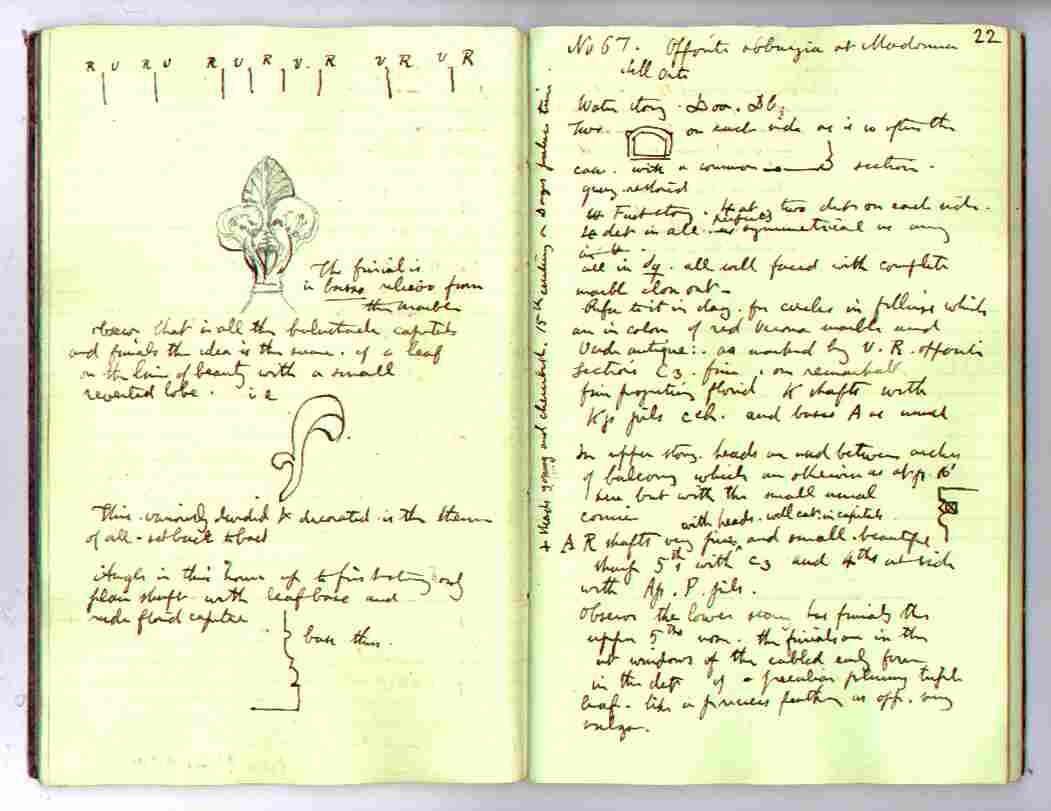 R U R U R U R U. R U R. U R
The finial is
in basso relievo from
the marble
observe that in all the balustrade capitals
and finials the idea is the same. of a leaf
on the line of beauty with a small
reverted lobe. i e
This variously divided & decorated is the theme
of all - set back to back
Angles in this house up to first story only
plain shaft with leaf base and
rude florid capital
base thus.
22
No 67. Opposite abbazia at Madonna
dell Orto
Water story. Door.
Two on each side as is so often the
case. with a common section.
query restored
First story. two dets on each side.
det in all. symmetrical as any
all in all faced with complete
marble
Refer to it in day. for circles in filling which
are in color of red Verona marble and
Verde antique: as marked by V. R. opposite
sections C3. fine. on remarkable
fine projecting florid K shafts with
pils and bases A as usual
In upper story. heads are used between arches
of balcony which are otherwise as at p. 16
here but with the small usual
cornice
with heads. well cut in capitals
A R shafts very fine and small. beautiful
sharp 5ths with C3 and 4ths at side
with P. pils.
Observe the lower story has finials the
upper 5ths none. the finials are in the
windows of the cabled early form
in the dets of a peculiar pluming triple
leaf. like a princes feather as opp. very
vulgar.
+ Heads young and cherubish. 15th century on Doges palace